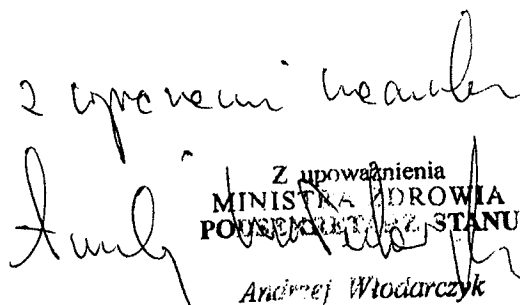 z wyrazami szacunku
Z upoważnienia
MINISTRA ZDROWIA
PODSEKRETARZ STANU
Andrzej Włodarczyk